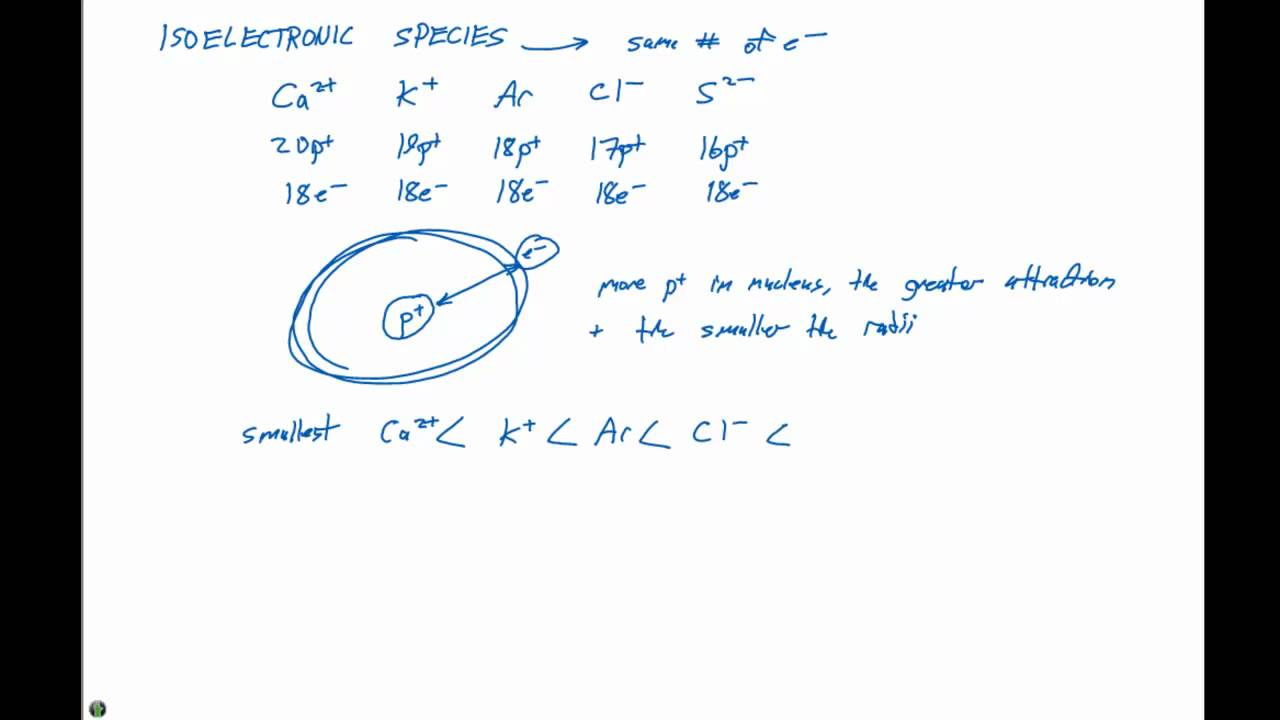 ISOELECTRONIC SPECIES → same # of e⁻
Ca²⁺ K⁺ Ar Cl⁻ S²⁻
20p⁺ 19p⁺ 18p⁺ 17p⁺ 16p⁺
18e⁻ 18e⁻ 18e⁻ 18e⁻ 18e⁻
e⁻
p⁺
more p⁺ in nucleus, the greater attraction
+ the smaller the radii
smallest Ca²⁺ < K⁺ < Ar < Cl⁻ <